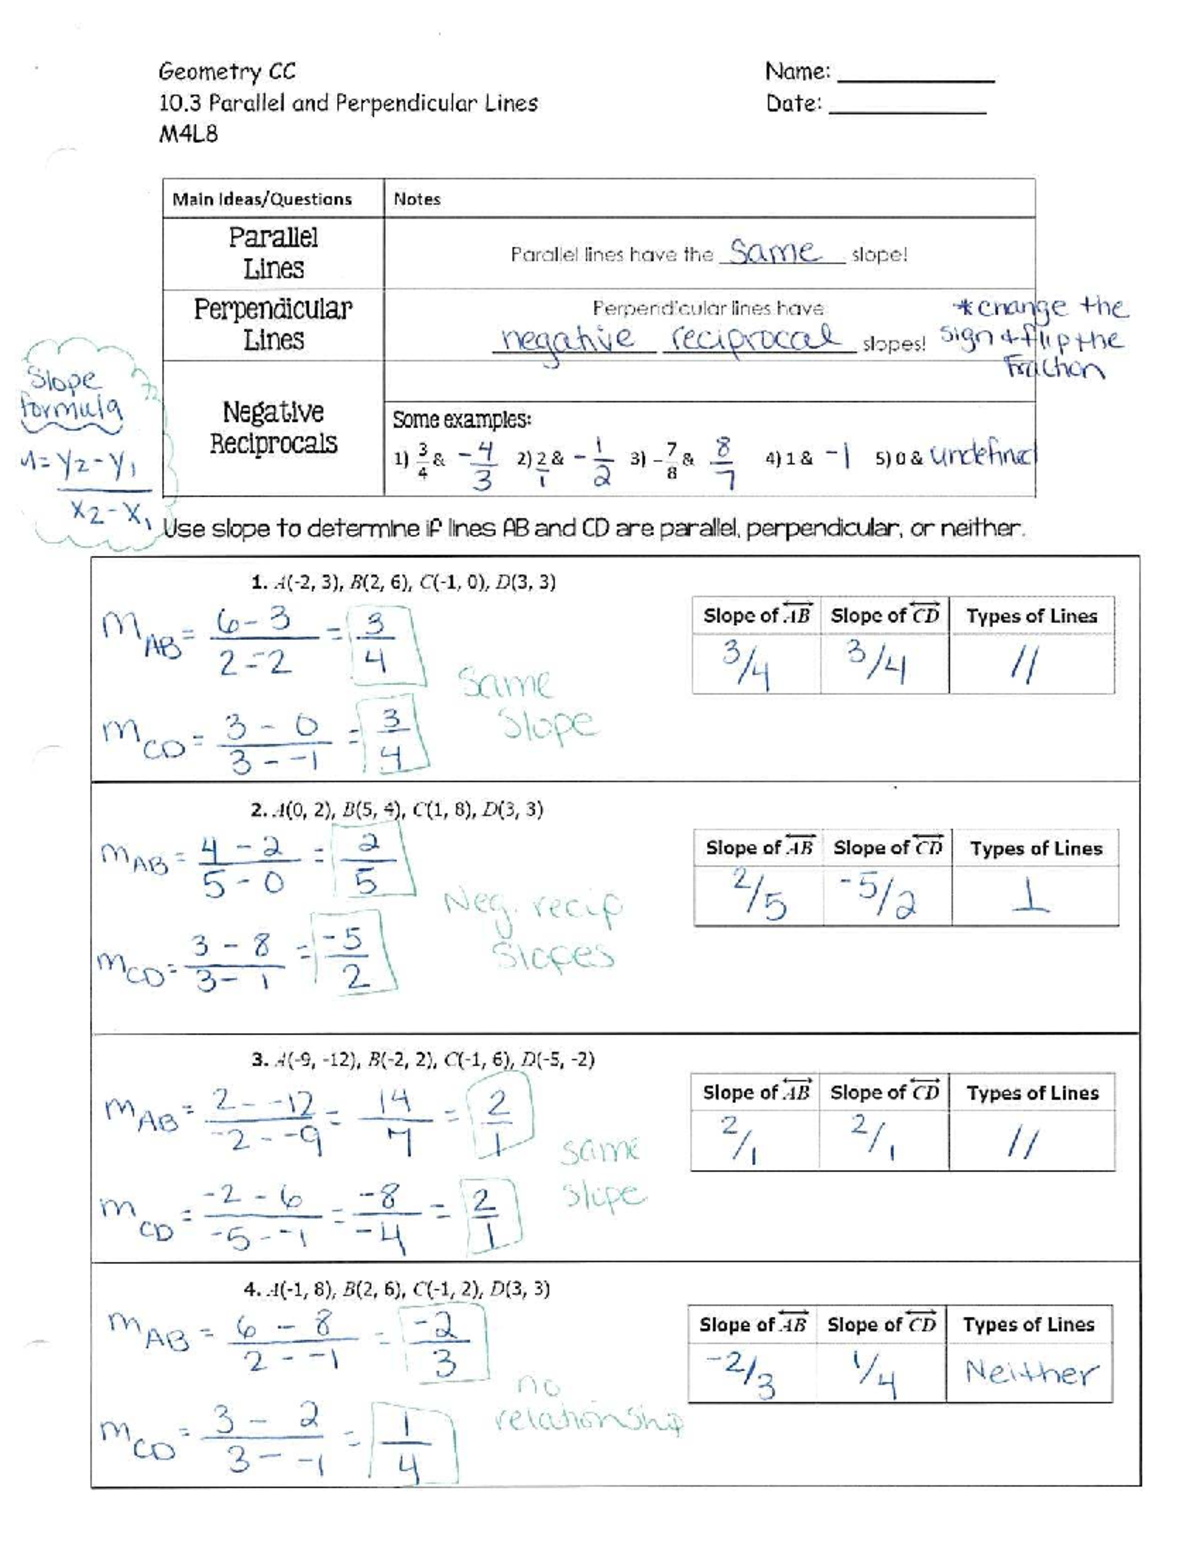 Geometry CC
Name: ____________
10.3 Parallel and Perpendicular Lines
Date: ____________
M4L8
Main Ideas/Questions
Notes
Parallel Lines
Parallel lines have the same slope!
Perpendicular Lines
Perpendicular lines have
negative reciprocal slopes!
*change the
sign & flip the
fraction
Slope
formula
M = y₂ - y₁ / x₂ - x₁
Negative Reciprocals
Some examples:
1) 3/4 & -4/3 2) 2/1 & -1/2 3) -7/8 & 8/7 4) 1 & -1 5) 0 & undefined
Use slope to determine if lines AB and CD are parallel, perpendicular, or neither.
1. A(-2, 3), B(2, 6), C(-1, 0), D(3, 3)
m AB = 6-3 / 2--2 = 3/4
m CD = 3-0 / 3--1 = 3/4
same
slope
Slope of AB Slope of CD Types of Lines
3/4 3/4 //
2. A(0, 2), B(5, 4), C(1, 8), D(3, 3)
m AB = 4-2 / 5-0 = 2/5
m CD = 3-8 / 3-1 = -5/2
Neg. recip
slopes
Slope of AB Slope of CD Types of Lines
2/5 -5/2 ⊥
3. A(-9, -12), B(-2, 2), C(-1, 6), D(-5, -2)
m AB = 2--12 / -2--9 = 14/7 = 2/1
m CD = -2-6 / -5--1 = -8/-4 = 2/1
same
slope
Slope of AB Slope of CD Types of Lines
2/1 2/1 //
4. A(-1, 8), B(2, 6), C(-1, 2), D(3, 3)
m AB = 6-8 / 2--1 = -2/3
m CD = 3-2 / 3--1 = 1/4
no
relationship
Slope of AB Slope of CD Types of Lines
-2/3 1/4 Neither